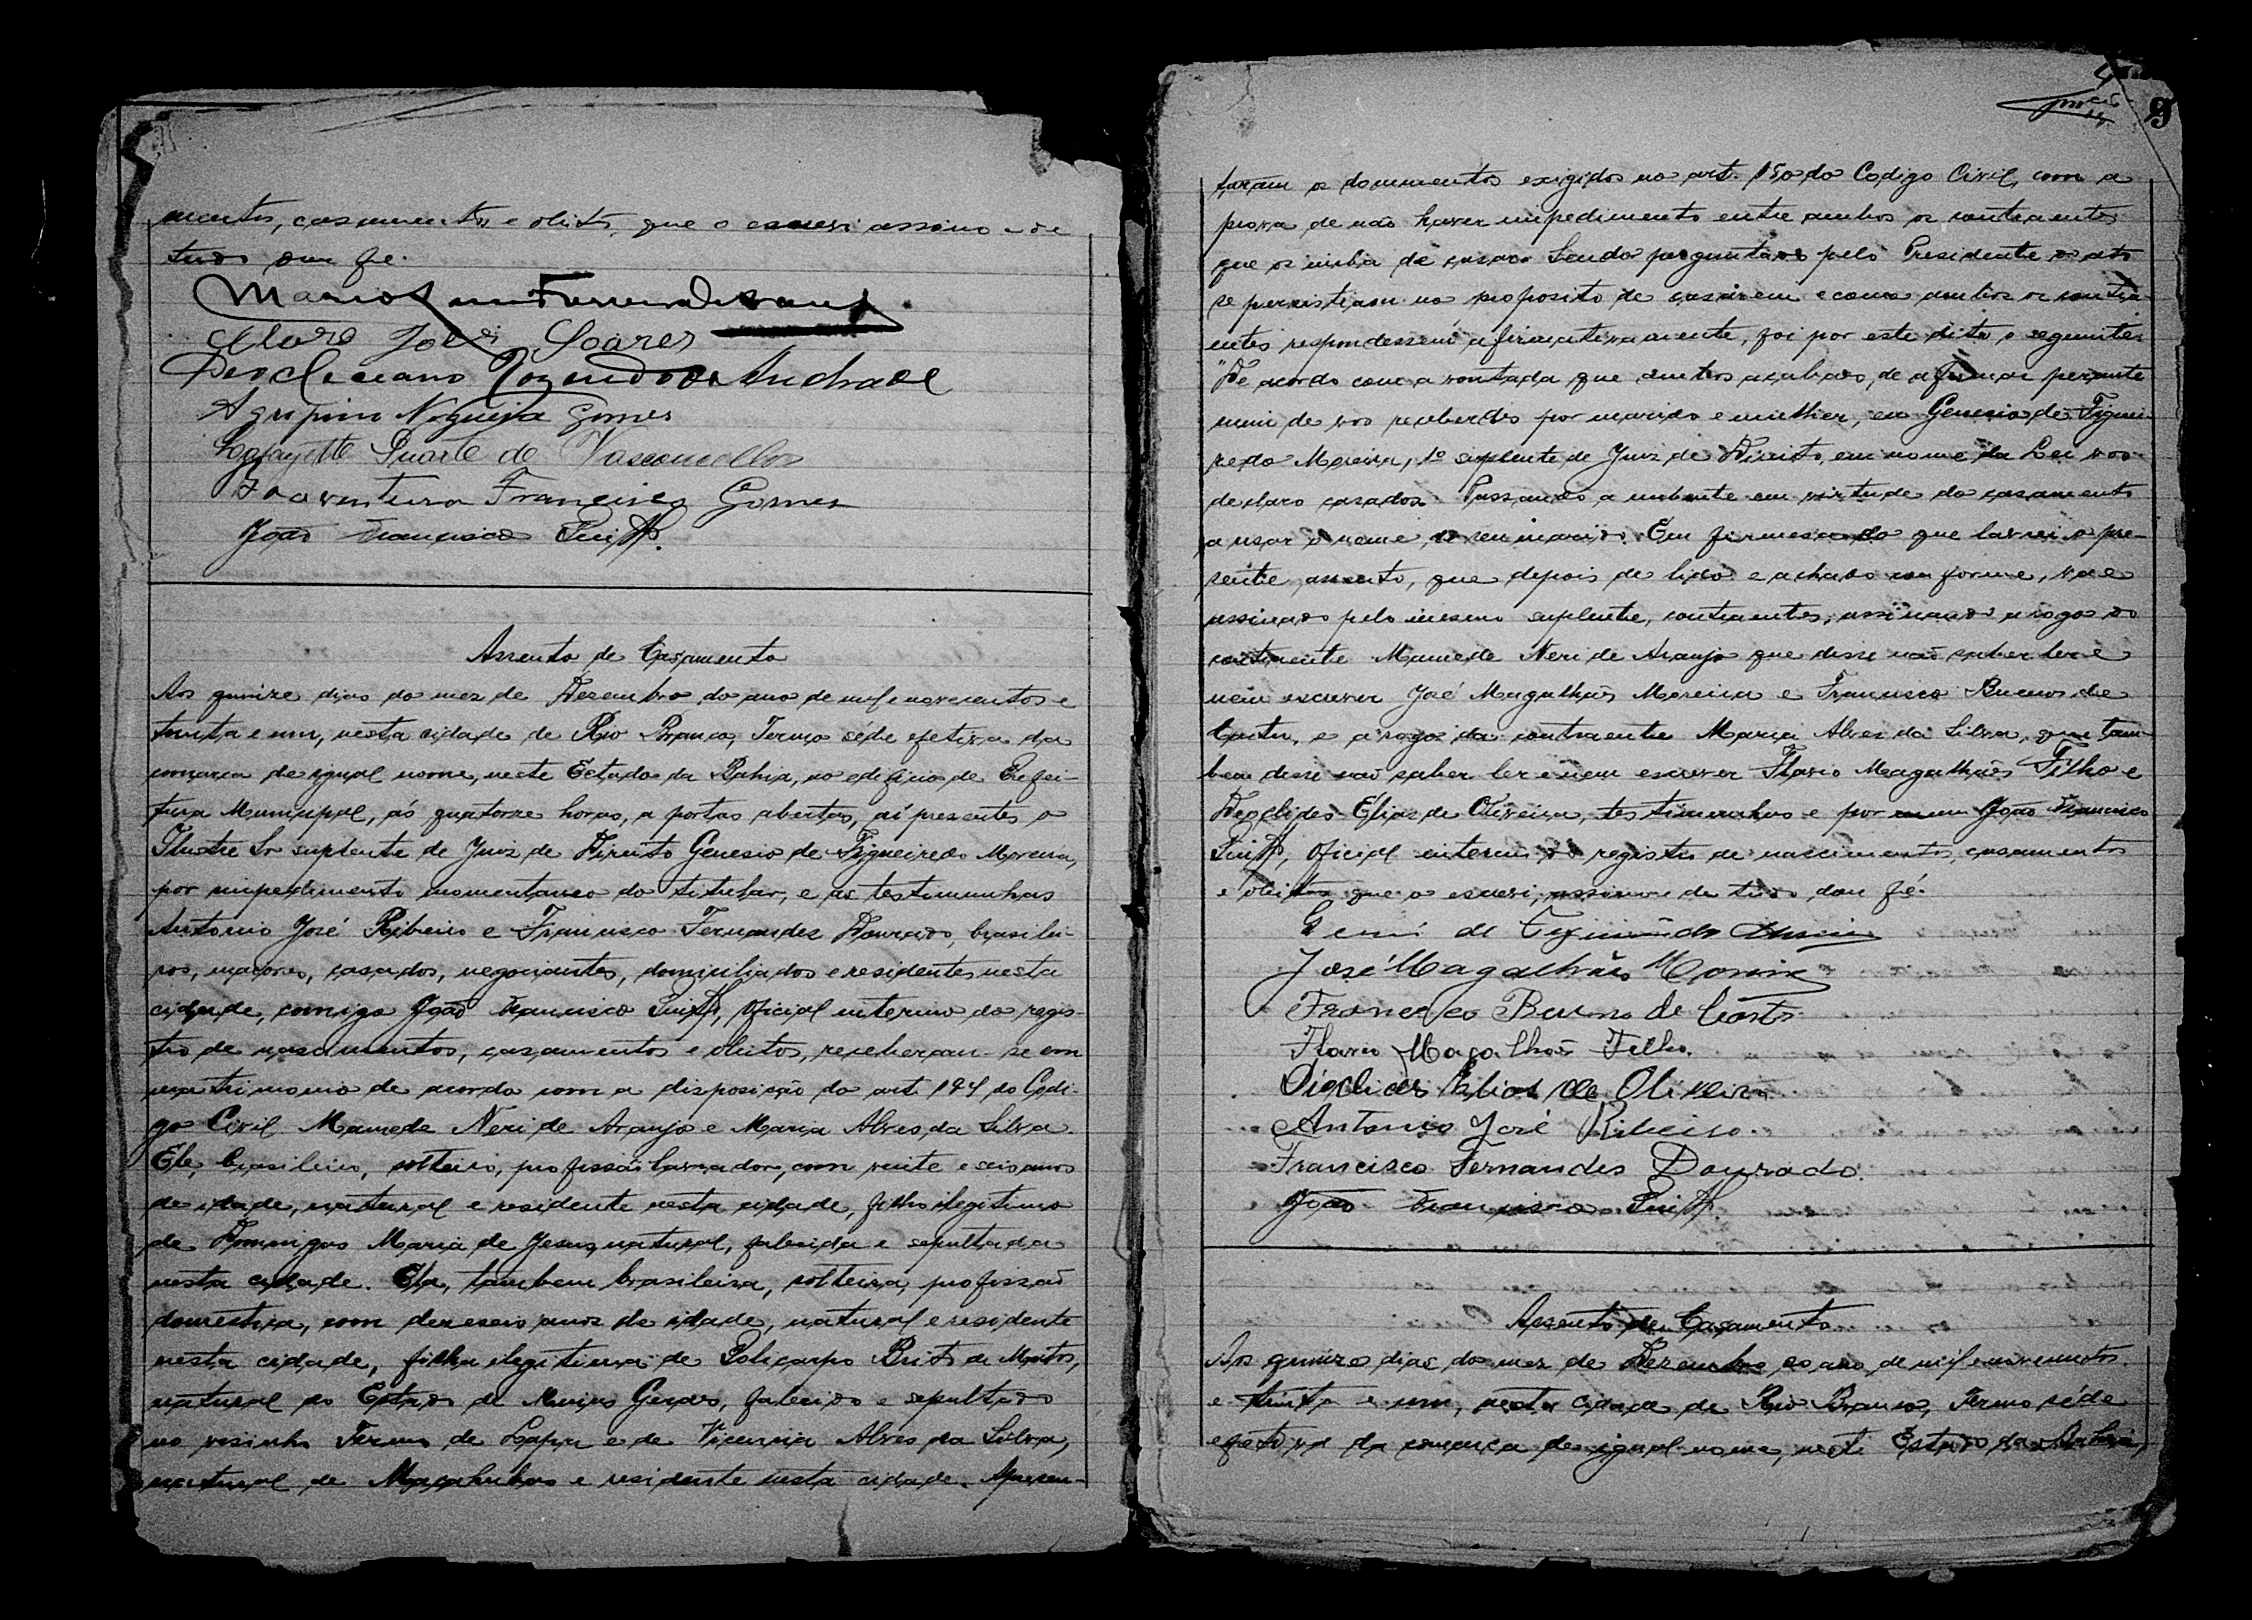 mentos, casamentos e obitos, que o escrevi assino e de
tudo dou fé.
Mario
Alvaro Soares
Deocleciano Rozendo de Andrade
Agripino Nogueira Gomes
Lafayette Duarte de Vasconcellos
Boaventura Francisco Gomes
João Francisco
Assento de Casamento
Aos quinze dias do mez de Dezembro do ano de mil e novecentos e
trinta e um, nesta cidade de Rio Branco, Termo séde efetiva da
comarca de igual nome, neste Estado da Bahia, no edificio de Prefei-
tura Municipal, ás quatorze horas, a portas abertas, aí presentes o
Ilustre Sr suplente de Juiz de Direito Genesio de Figueiredo Moreira,
por impedimento momentaneo do titular, e as testimunhas
Antonio José Ribeiro e Francisco Fernandes Dourado, brasilei-
ros, maiores, casados, negociantes, domiciliados e residentes nesta
cidade, comigo João Francisco, oficial interino do regis-
tro de nascimentos, casamentos e obitos, receberam-se em
matrimonio de acordo com a disposição do art. 194 do Codi-
go Civil Mamede Neri de Araujo e Maria Alves da Silva.
Ele, brasileiro, solteiro, profissão lavrador, com vinte e seis anos
de idade, natural e residente nesta cidade, filho ilegitimo
de Domingas Maria de Jesus, natural, falecida e sepultada
nesta cidade. Ela, tambem brasileira, solteira, profissão
domestica, com dezeseis anos de idade, natural e residente
nesta cidade, filha ilegitima de Policarpo Brito de Matos,
natural do Estado de Minas Geraes, falecido e sepultado
no visinho Termo de Lapa e de Vicencia Alves da Silva,
natural de Macahubas e residente nesta cidade. Apresen-
9
taram os documentos exigidos no art. 180 do Codigo Civil, com a
prova de não haver impedimento entre ambos os contraentes
que os iniba de casar. Sendo perguntados pelo Presidente do ato
se persistiam no proposito de casarem e como ambos os contra-
entes respondessem afirmativamente, foi por este dito o seguinte:
"De acordo com a vontade que ambos acabaes de afirmar perante
mim de vos receberdes por marido e mulher, eu Genesio de Figuei-
redo Moreira, 1º suplente de Juiz de Direito, em nome da Lei vos
declaro casados. Passando a nubente em virtude do casamento
a usar o nome do seu marido. Em firmesa do que lavrei o pre-
sente assento, que depois de lido e achado conforme, vae
assinado pelo mesmo suplente, contraentes, assinando a rogo do
contraente Mamede Neri de Araujo que disse não saber ler e
nem escrever José Magalhães Moreira e Francisco Bueno de
Castro, e a rogo da contraente Maria Alves da Silva, que tam-
bem disse não saber ler e nem escrever Flavio Magalhães Filho e
Deoclides Elias de Oliveira, testimunhas e por mim João Francisco
oficial interino do registro de nascimentos, casamentos
e obitos que o escrevi, assino e de tudo dou fé.
Genesio de Figueiredo Moreira
José Magalhães Moreira
Francisco Bueno de Castro
Flavio Magalhães Filho.
Dioclides Elias de Oliveira
Antonio José Ribeiro.
Francisco Fernandes Dourado.
João Francisco
Assento de Casamento
Aos quinze dias do mez de Dezembro do ano de mil e novecentos
e trinta e um, nesta cidade de Rio Branco, Termo séde
efetiva da comarca de igual nome, neste Estado da Bahia,